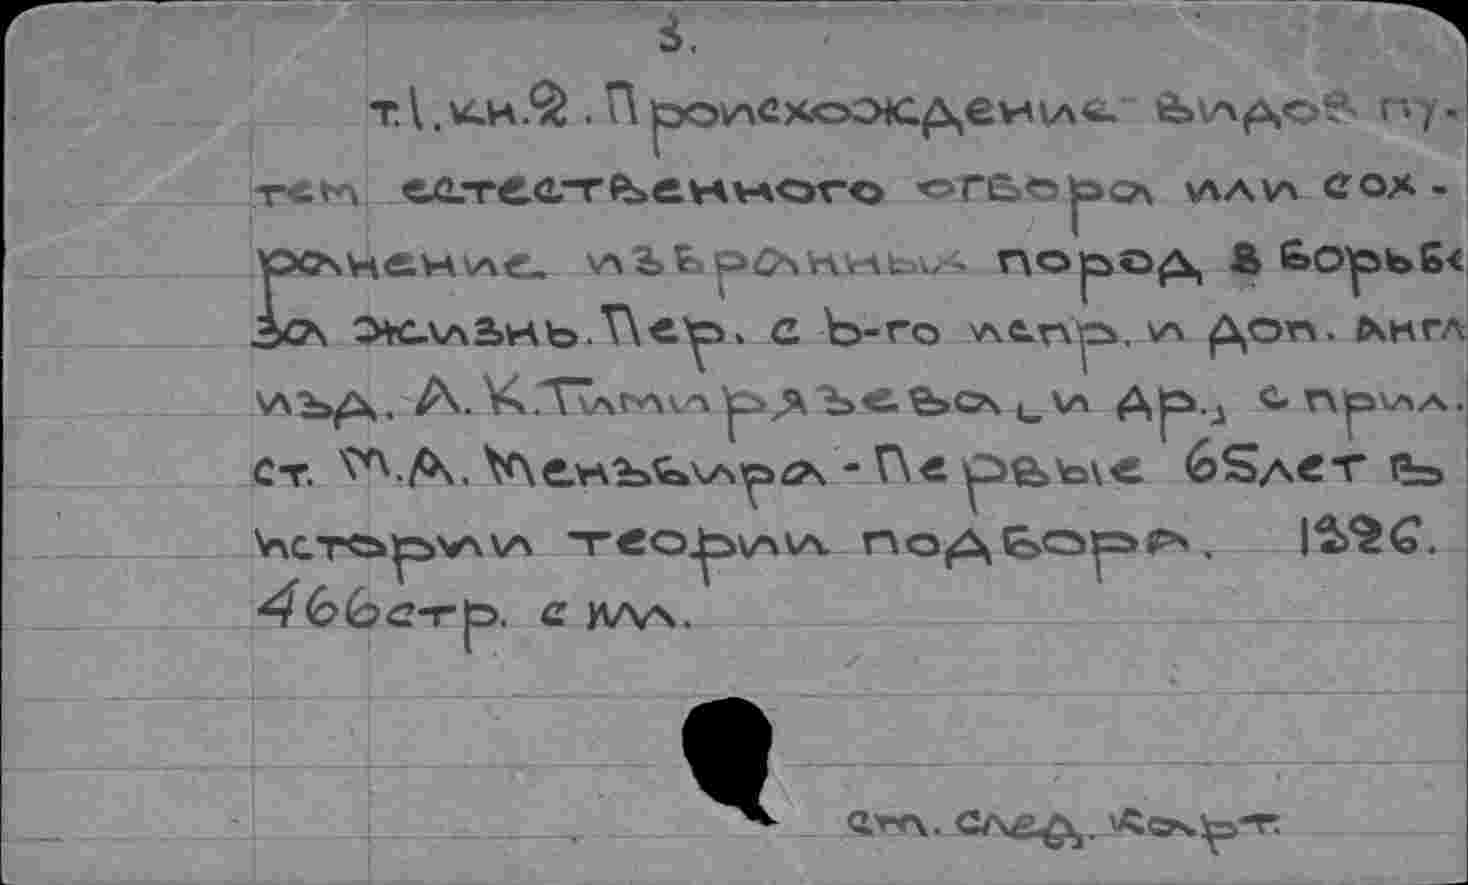 3.
т.1.кн.2. Происхождение видов пу-
тем естественного отбора или сох-
ранение избранных пород в борьбе
за жизнь. Пер. с 6-го испр. и доп. англ
изд. А. К. Тимирязева и др., с прил.
ст. М.А. Мензбира - Первые 65 лет в
истории теории подбора. 1926.
466 стр. с илл.
см. след. карт.